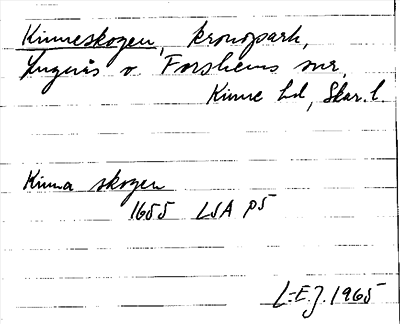 Kinneskogen, kronopark,
Lugnås o. Forshems snr,
Kinne hd, Skar. l.
Kinna skogen
1655 LSA P5
L-E.J. 1965